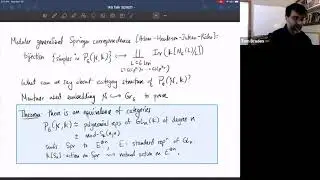 IAS Talk 3/29/21
Tom Braden
Modular generalized Springer correspondence (Achar-Henderson-Juteau-Riche):
bijection {simples in P_G(N, k)} ⟷ ∐ Irr(k[N_G(L)/L])
L ⊂ G Levi
What can we say about category structure of P_G(N, k)?
Mautner used embedding N ↪ Gr_G to prove
Theorem: there is an equivalence of categories
P_G(N, k) ≅ polynomial reps of GL_n(k) of degree n
≅ mod-S_k(n,n)
sends Spr to E^{⊗n}, E = standard rep'n of GL_n
k[S_n]-action on Spr ⟷ natural action on E^{⊗n}.